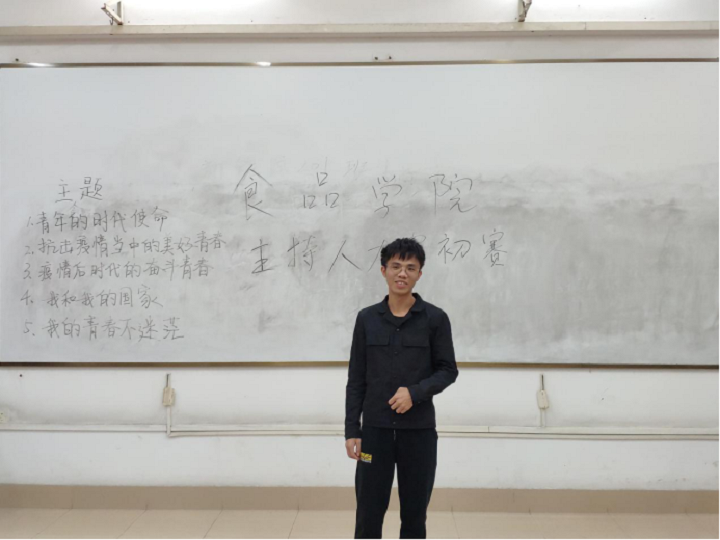 主题
1.青年的时代使命
2.抗击疫情当中的美好青春
3.疫情后时代的奋斗青春
4.我和我的国家
5.我的青春不迷茫
食品学院
主持人 初赛